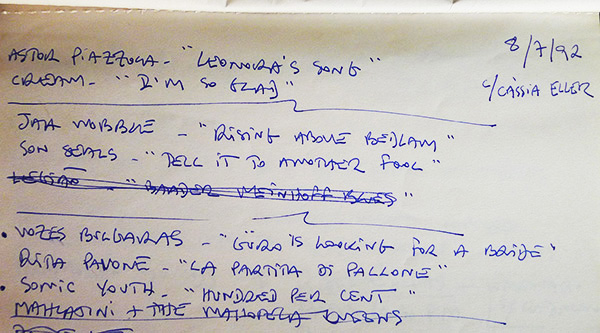 8/7/92
ASTOR PIAZZOLLA - "LEONORA'S SONG"
CREAM - "I'M SO GLAD"
C/ CÁSSIA ELLER
JAH WOBBLE - "RISING ABOVE BEDLAM"
SON SEALS - "TELL IT TO ANOTHER FOOL"
LEGIÃO - "BAADER MEINHOFF BLUES"
• VOZES BULGARAS - "GÜRO IS LOOKING FOR A BRIDE"
RITA PAVONE - "LA PARTITA DI PALLONE"
• SONIC YOUTH - "HUNDRED PER CENT"
MAHLATINI + THE MAHOTELA QUEENS